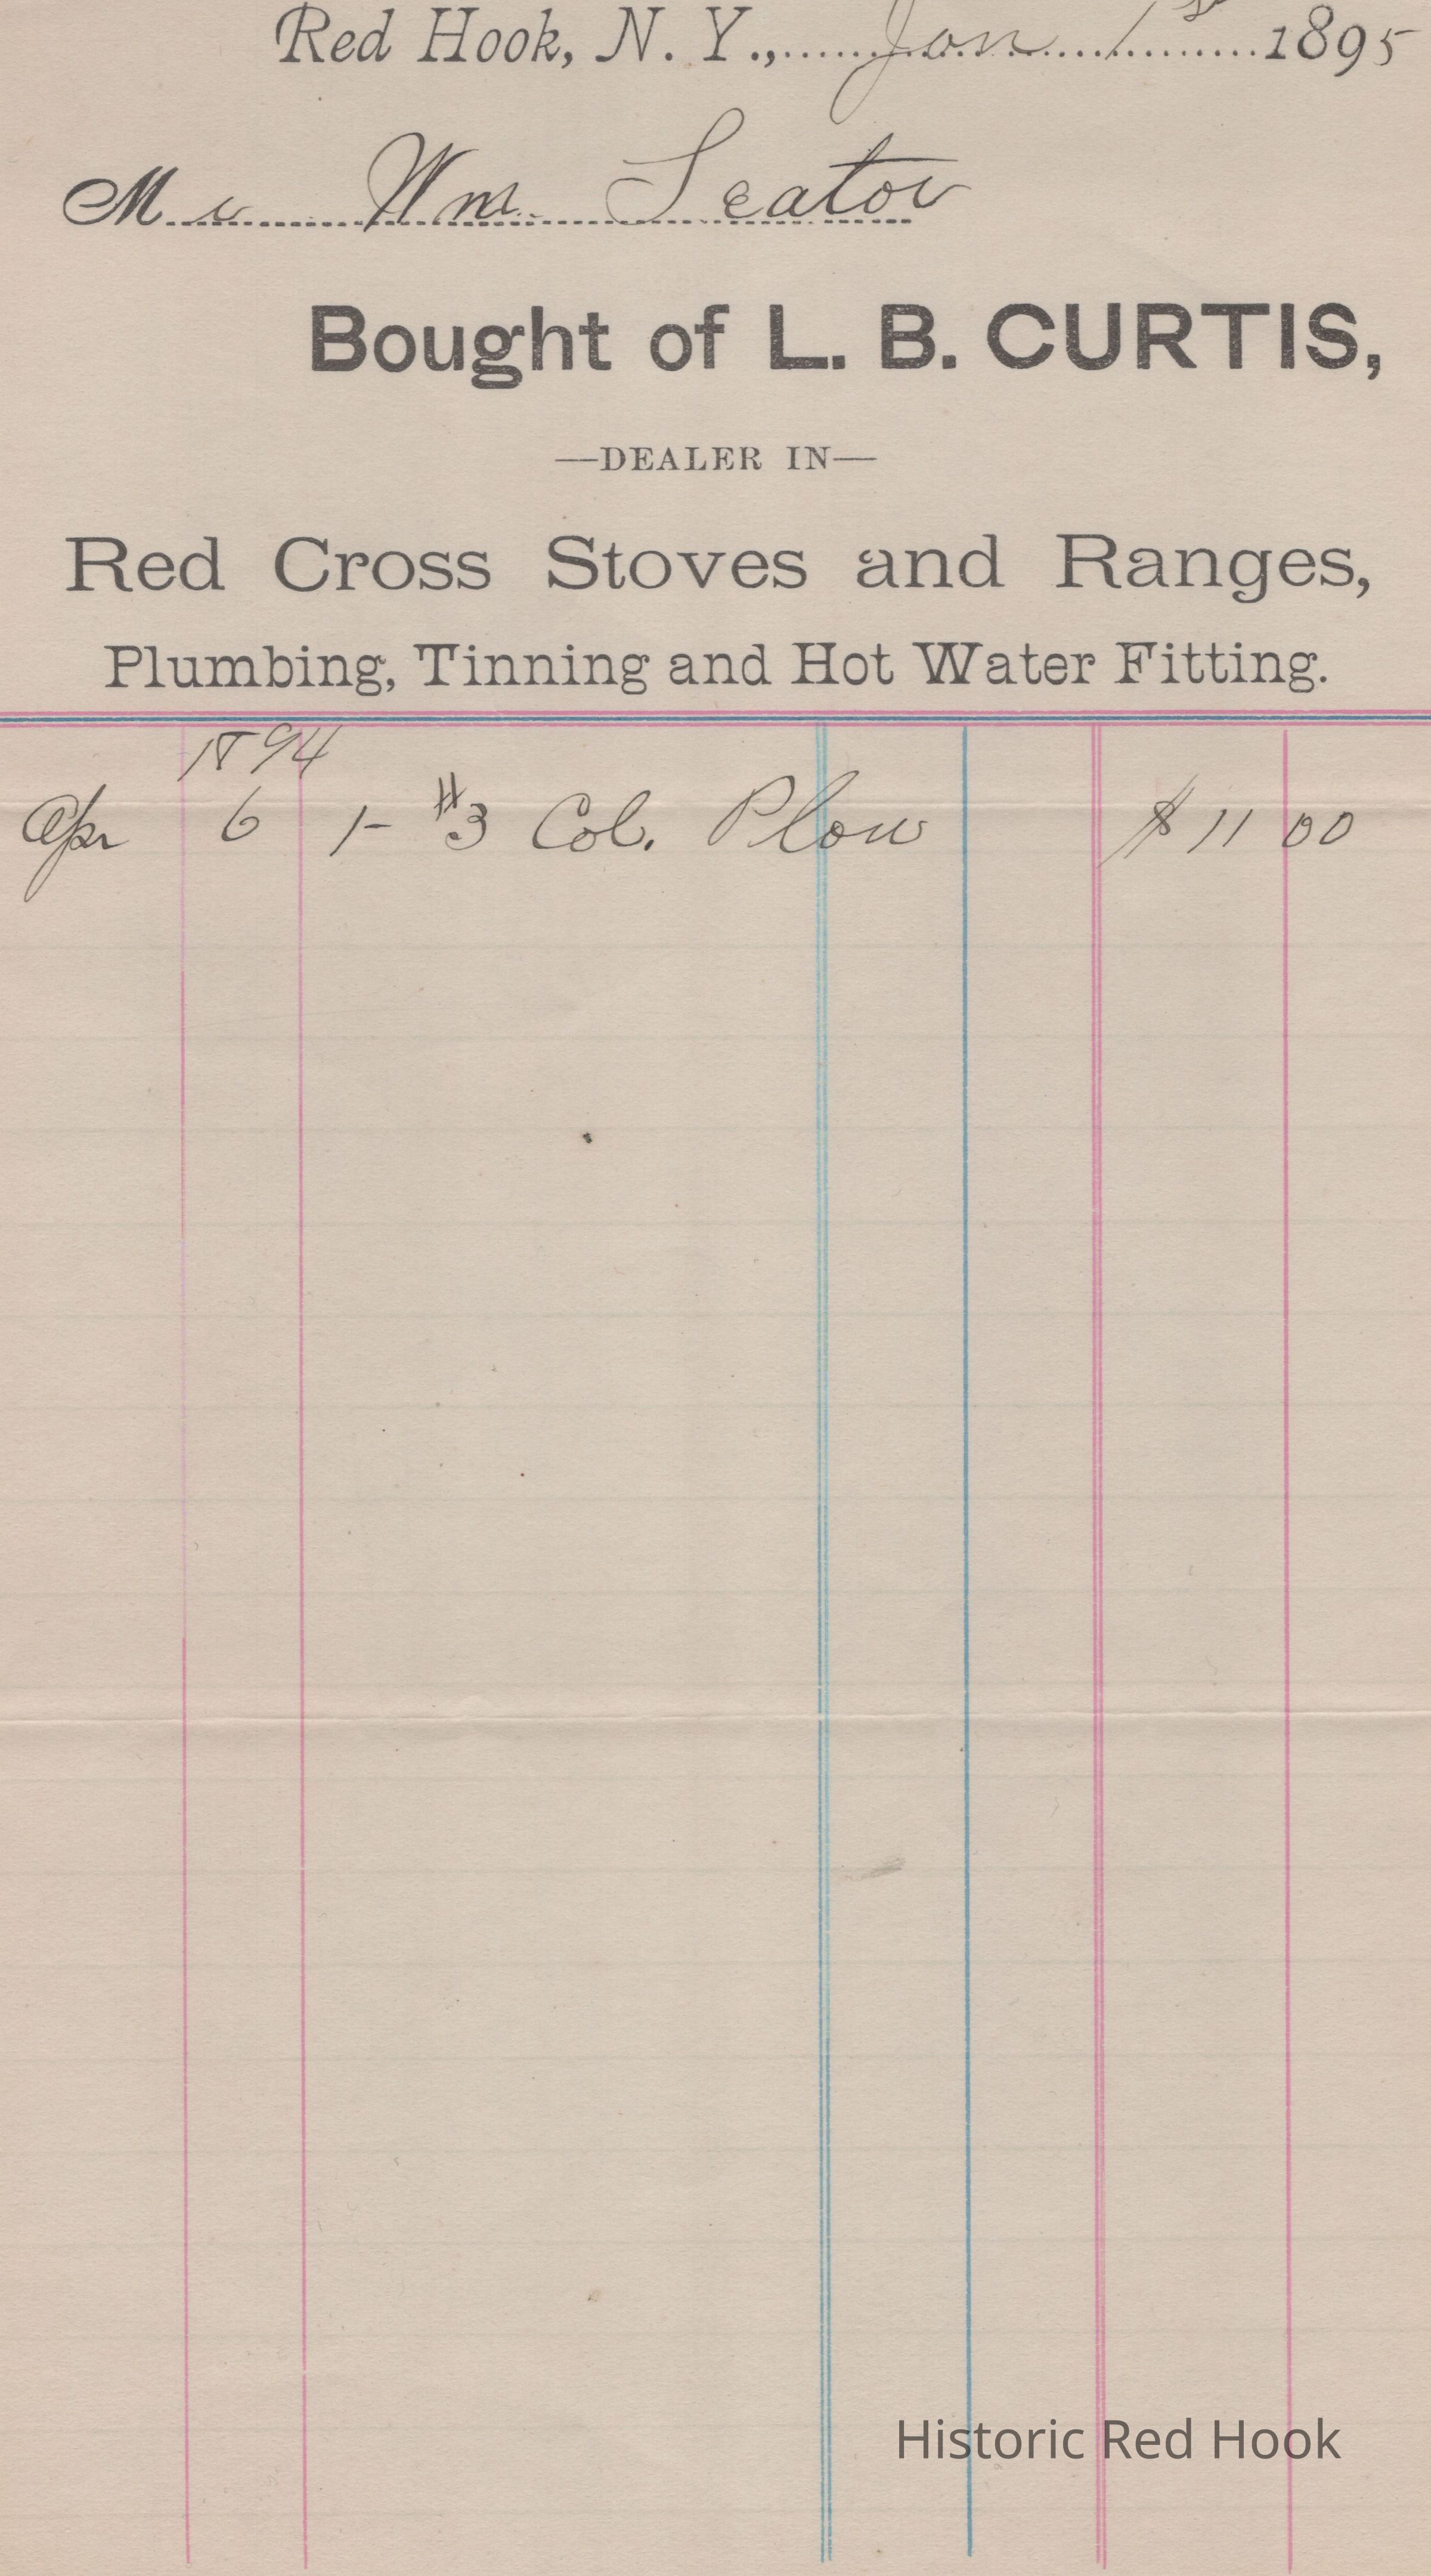 Red Hook, N. Y., Jan 1st 1895
Mr Wm. Seator
Bought of L. B. CURTIS,
—DEALER IN—
Red Cross Stoves and Ranges,
Plumbing, Tinning and Hot Water Fitting.
1894
Apr 6 1- #3 Col. Plow $11 00
Historic Red Hook